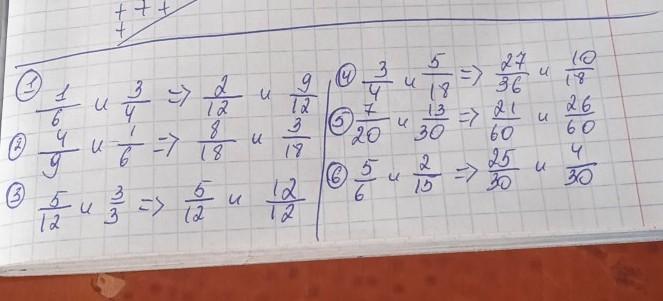 + 7 +
+
① 1/6 и 3/4 => 2/12 и 9/12
② 4/9 и 1/6 => 8/18 и 3/18
③ 5/12 и 3/3 => 5/12 и 12/12
④ 3/4 и 5/18 => 27/36 и 10/18
⑤ 7/20 и 13/30 => 21/60 и 26/60
⑥ 5/6 и 2/15 => 25/30 и 4/30